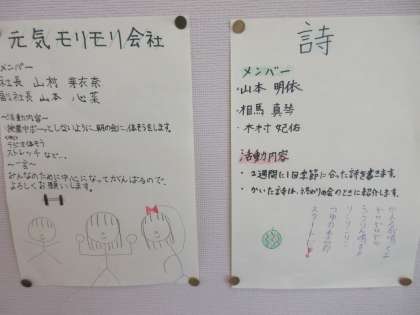 元気モリモリ会社
メンバー
社長 山村 芽衣奈
副社長 山本 心菜
~活動内容~
・授業中ボーッとしないように、朝の会に体そうをします。
ラジオ体そう
ストレッチ など…
~一言~
みんなのために中心になってがんばるので、
よろしくお願いします。
詩
メンバー
・山本 明依
・相馬 真琴
・木村 妃佑
活動内容
・2週間に1回季節に合った詩を書きます。
・かいた詩は、うしろの
に紹介します。
スタート